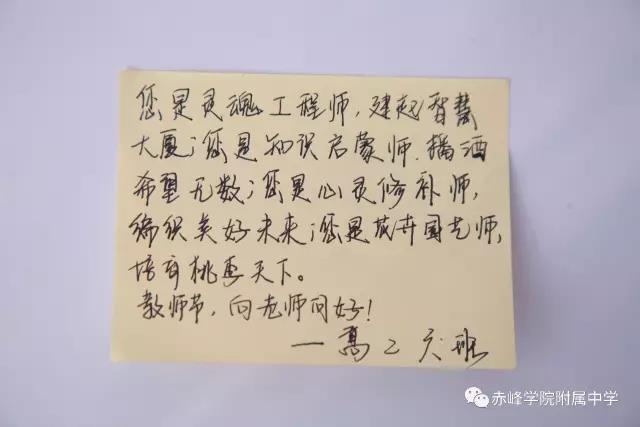 您是灵魂工程师，建起智慧
大厦；您是知识启蒙师，播洒
希望无数；您是心灵修补师，
编织美好未来；您是花卉园艺师，
培育桃李天下。
教师节，向老师问好！
一高二六班
赤峰学院附属中学